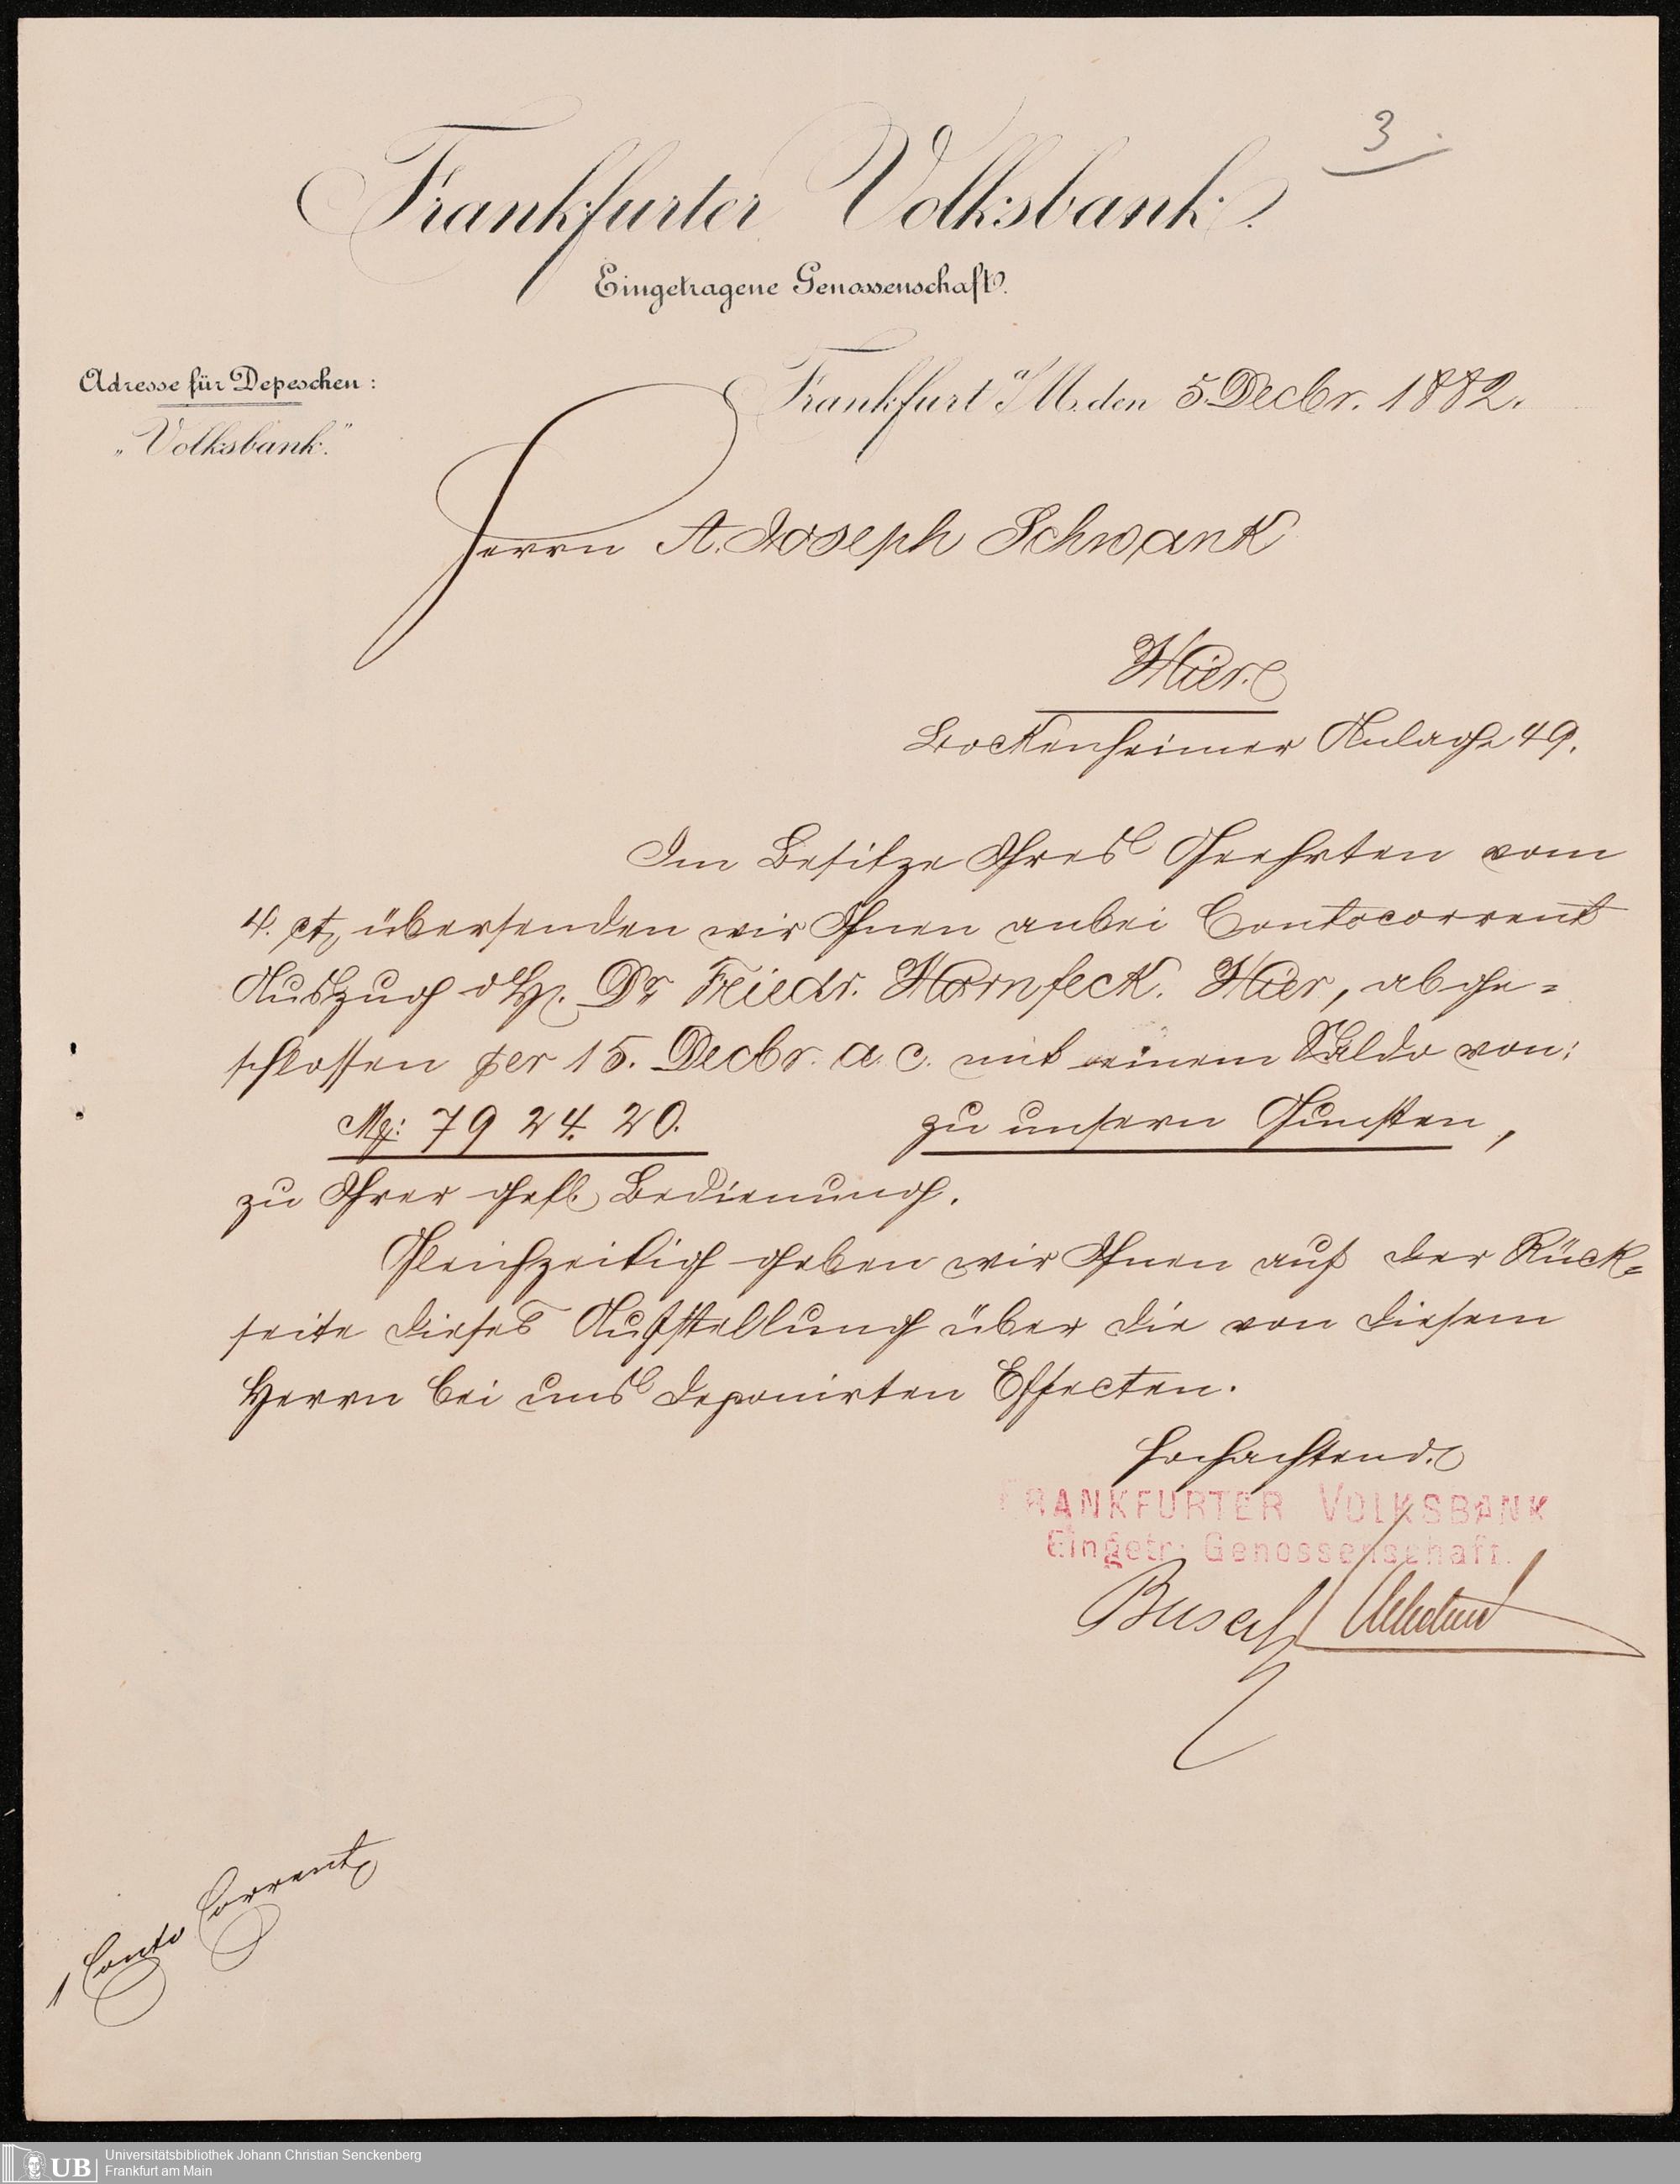 3.
Frankfurter Volksbank.
Eingetragene Genossenschaft.
Adresse für Depeschen:
„Volksbank."
Frankfurt a/M. den 5. Decbr. 1882.
Herrn A. Joseph Schwank
Hier.
Bockenheimer Anlage 49.
Im Besitze Ihres Geehrten vom
4. ct, übersenden wir Ihnen anbei Contocorrent
Auszug d H. Dr Friedr. Hornfeck. Hier, abge=
schlossen per 15. Decbr. a. c. mit einem Saldo von:
M: 7924.20. zu unsern Gunsten,
zu Ihrer gefl. Bedienung.
Gleichzeitig geben wir Ihnen auf der Rück=
seite dieses Aufstellung über die von diesem
Herrn bei uns deponirten Effecten.
Hochachtend.
FRANKFURTER VOLKSBANK
Eingetr. Genossenschaft.
Busch
1 Conto Corrent
UB
Universitätsbibliothek Johann Christian Senckenberg
Frankfurt am Main